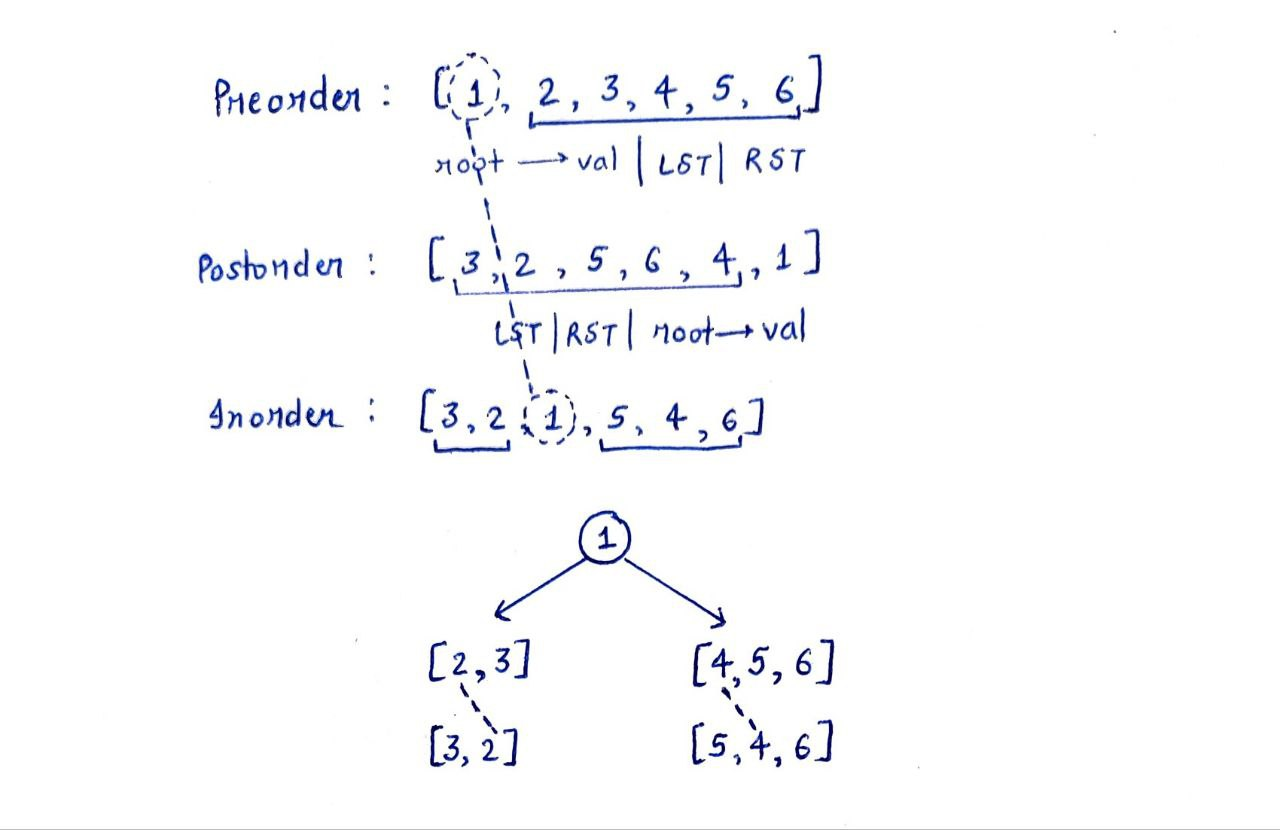 Preorder : [1, 2, 3, 4, 5, 6]
root → val | LST | RST
Postorder : [3, 2, 5, 6, 4, 1]
LST | RST | root → val
Inorder : [3, 2, 1, 5, 4, 6]
1
[2, 3] [4, 5, 6]
[3, 2] [5, 4, 6]